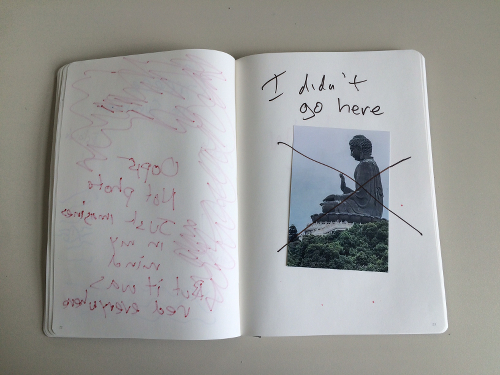 Oops
Not photo
Just imagine
in my
mind
But it was
red everywhere
I didn't
go here